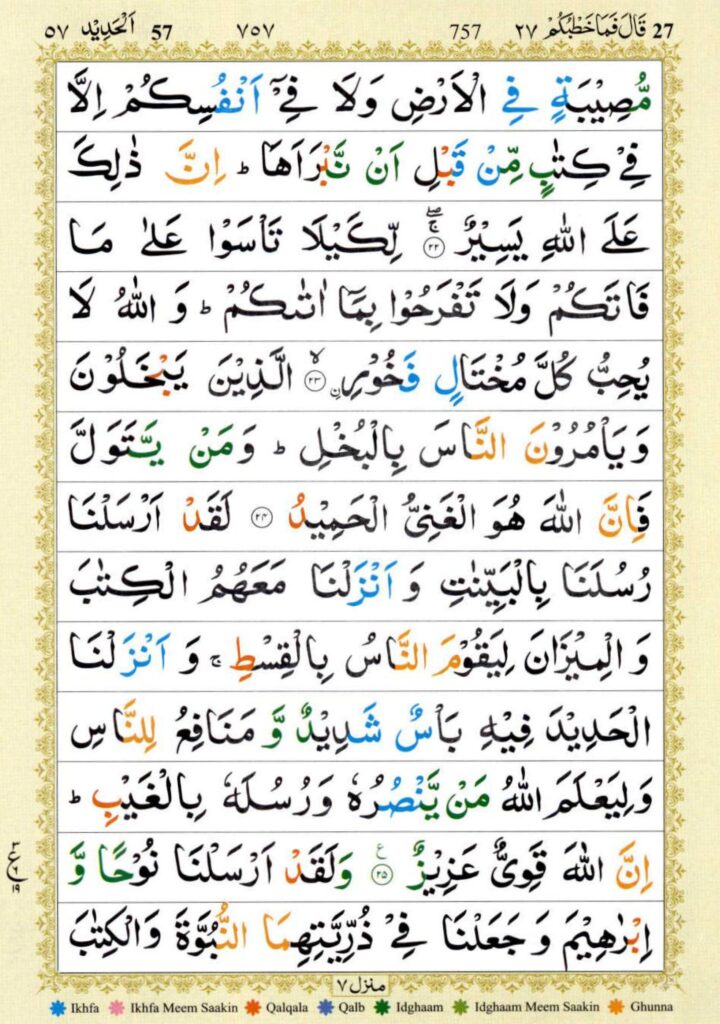 27 قَالَ فَمَا خَطْبُكُمْ ٢٧ 757 ٧٥٧ 57 اَلْحَدِيْد ٥٧
مُّصِيْبَةٍ فِي الْاَرْضِ وَلَا فِيْۤ اَنْفُسِكُمْ اِلَّا
فِيْ كِتٰبٍ مِّنْ قَبْلِ اَنْ نَّبْرَاَهَا ؕ اِنَّ ذٰلِكَ
عَلَى اللّٰهِ يَسِيْرٌ ۚۖ ﴿٢٢﴾ لِّكَيْلَا تَاْسَوْا عَلٰى مَا
فَاتَكُمْ وَلَا تَفْرَحُوْا بِمَاۤ اٰتٰىكُمْ ؕ وَ اللّٰهُ لَا
يُحِبُّ كُلَّ مُخْتَالٍ فَخُوْرِ ۙ﴿٢٣﴾ الَّذِيْنَ يَبْخَلُوْنَ
وَ يَاْمُرُوْنَ النَّاسَ بِالْبُخْلِ ؕ وَ مَنْ يَّتَوَلَّ
فَاِنَّ اللّٰهَ هُوَ الْغَنِيُّ الْحَمِيْدُ ﴿٢٤﴾ لَقَدْ اَرْسَلْنَا
رُسُلَنَا بِالْبَيِّنٰتِ وَ اَنْزَلْنَا مَعَهُمُ الْكِتٰبَ
وَ الْمِيْزَانَ لِيَقُوْمَ النَّاسُ بِالْقِسْطِ ۚ وَ اَنْزَلْنَا
الْحَدِيْدَ فِيْهِ بَاْسٌ شَدِيْدٌ وَّ مَنَافِعُ لِلنَّاسِ
وَ لِيَعْلَمَ اللّٰهُ مَنْ يَّنْصُرُهٗ وَ رُسُلَهٗ بِالْغَيْبِ ؕ
اِنَّ اللّٰهَ قَوِيٌّ عَزِيْزٌ ﴿٢٥﴾ع وَلَقَدْ اَرْسَلْنَا نُوْحًا وَّ
اِبْرٰهِيْمَ وَ جَعَلْنَا فِيْ ذُرِّيَّتِهِمَا النُّبُوَّةَ وَالْكِتٰبَ
٣ ع ٦ ١٩
منزل ٧
Ikhfa Ikhfa Meem Saakin Qalqala Qalb Idghaam Idghaam Meem Saakin Ghunna